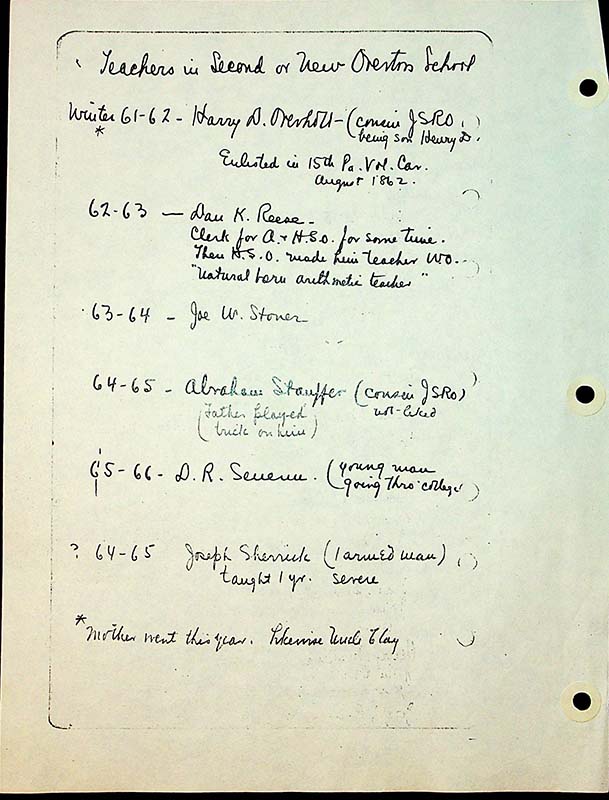 Teachers in Second or New Overton School
Winter 61-62 - Harry D. Overholt - (cousin JSRO,)
* being son Henry D.
Enlisted in 15th Pa. Vol. Cav.
August 1862.
62-63 — Dan K. Reese -
Clerk for A. + H.S.O. for some time.
Then H.S.O. made him teacher WO.
"natural born arithmetic teacher"
63-64 - Joe W. Stoner
64-65 - Abraham Stauffer (cousin JSRO)
(Father played not liked
trick on him)
65-66 - D. R. (young man
going thro' college)
? 64-65 Joseph Sherrick (1 armed man)
taught 1 yr. severe
* Mother went this year. Likewise Uncle Clay